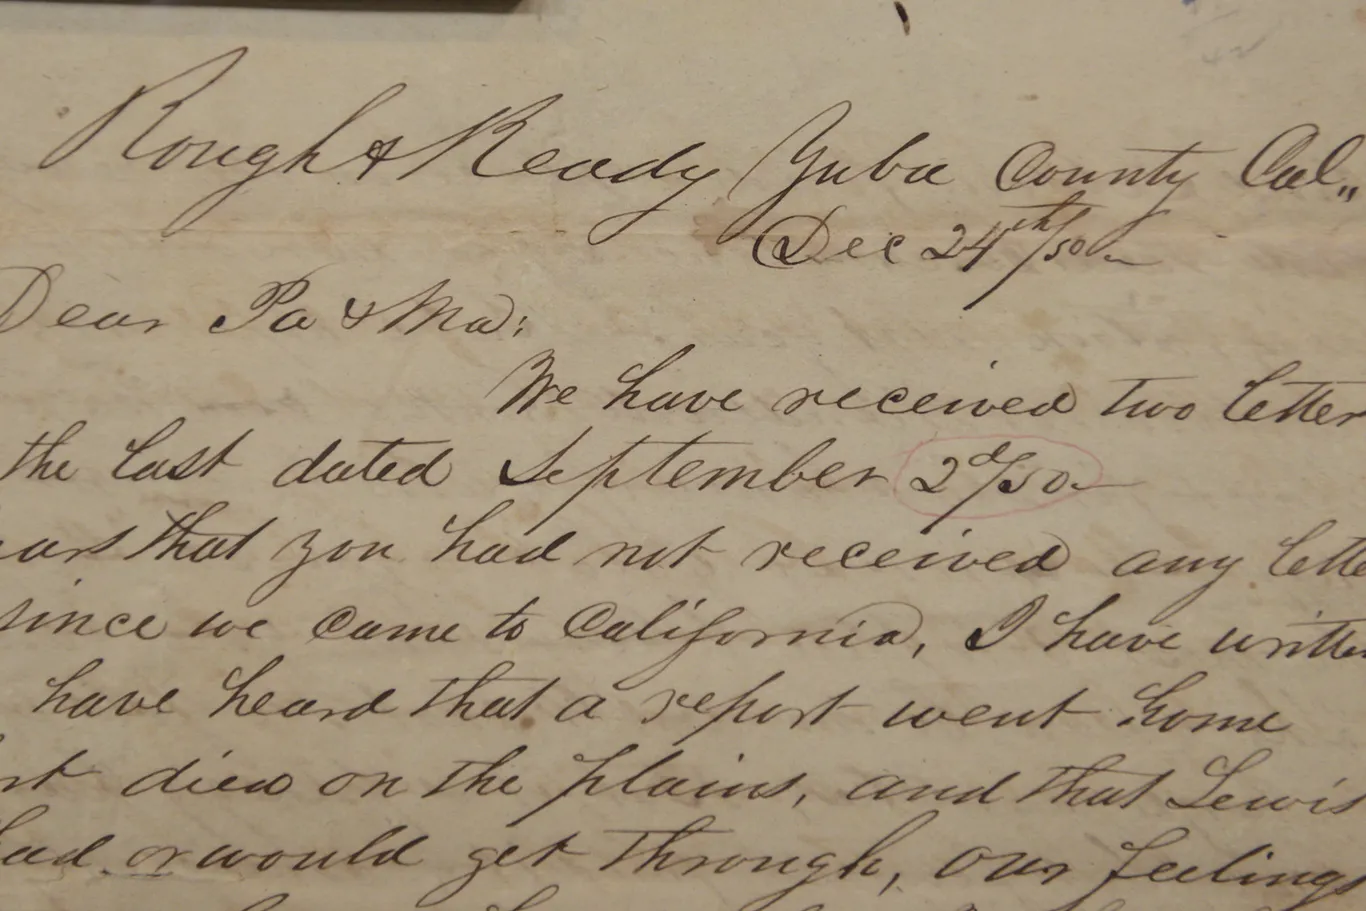 Rough & Ready Yuba County Cal,,
Dec 24th/50
Dear Pa & Ma:
We have received two letter
the last dated September 2d/50
ars that you had not received any lette
since we came to California, I have written
have heard that a report went home
rt died on the plains, and that Lewis
had or would get through, our feelings